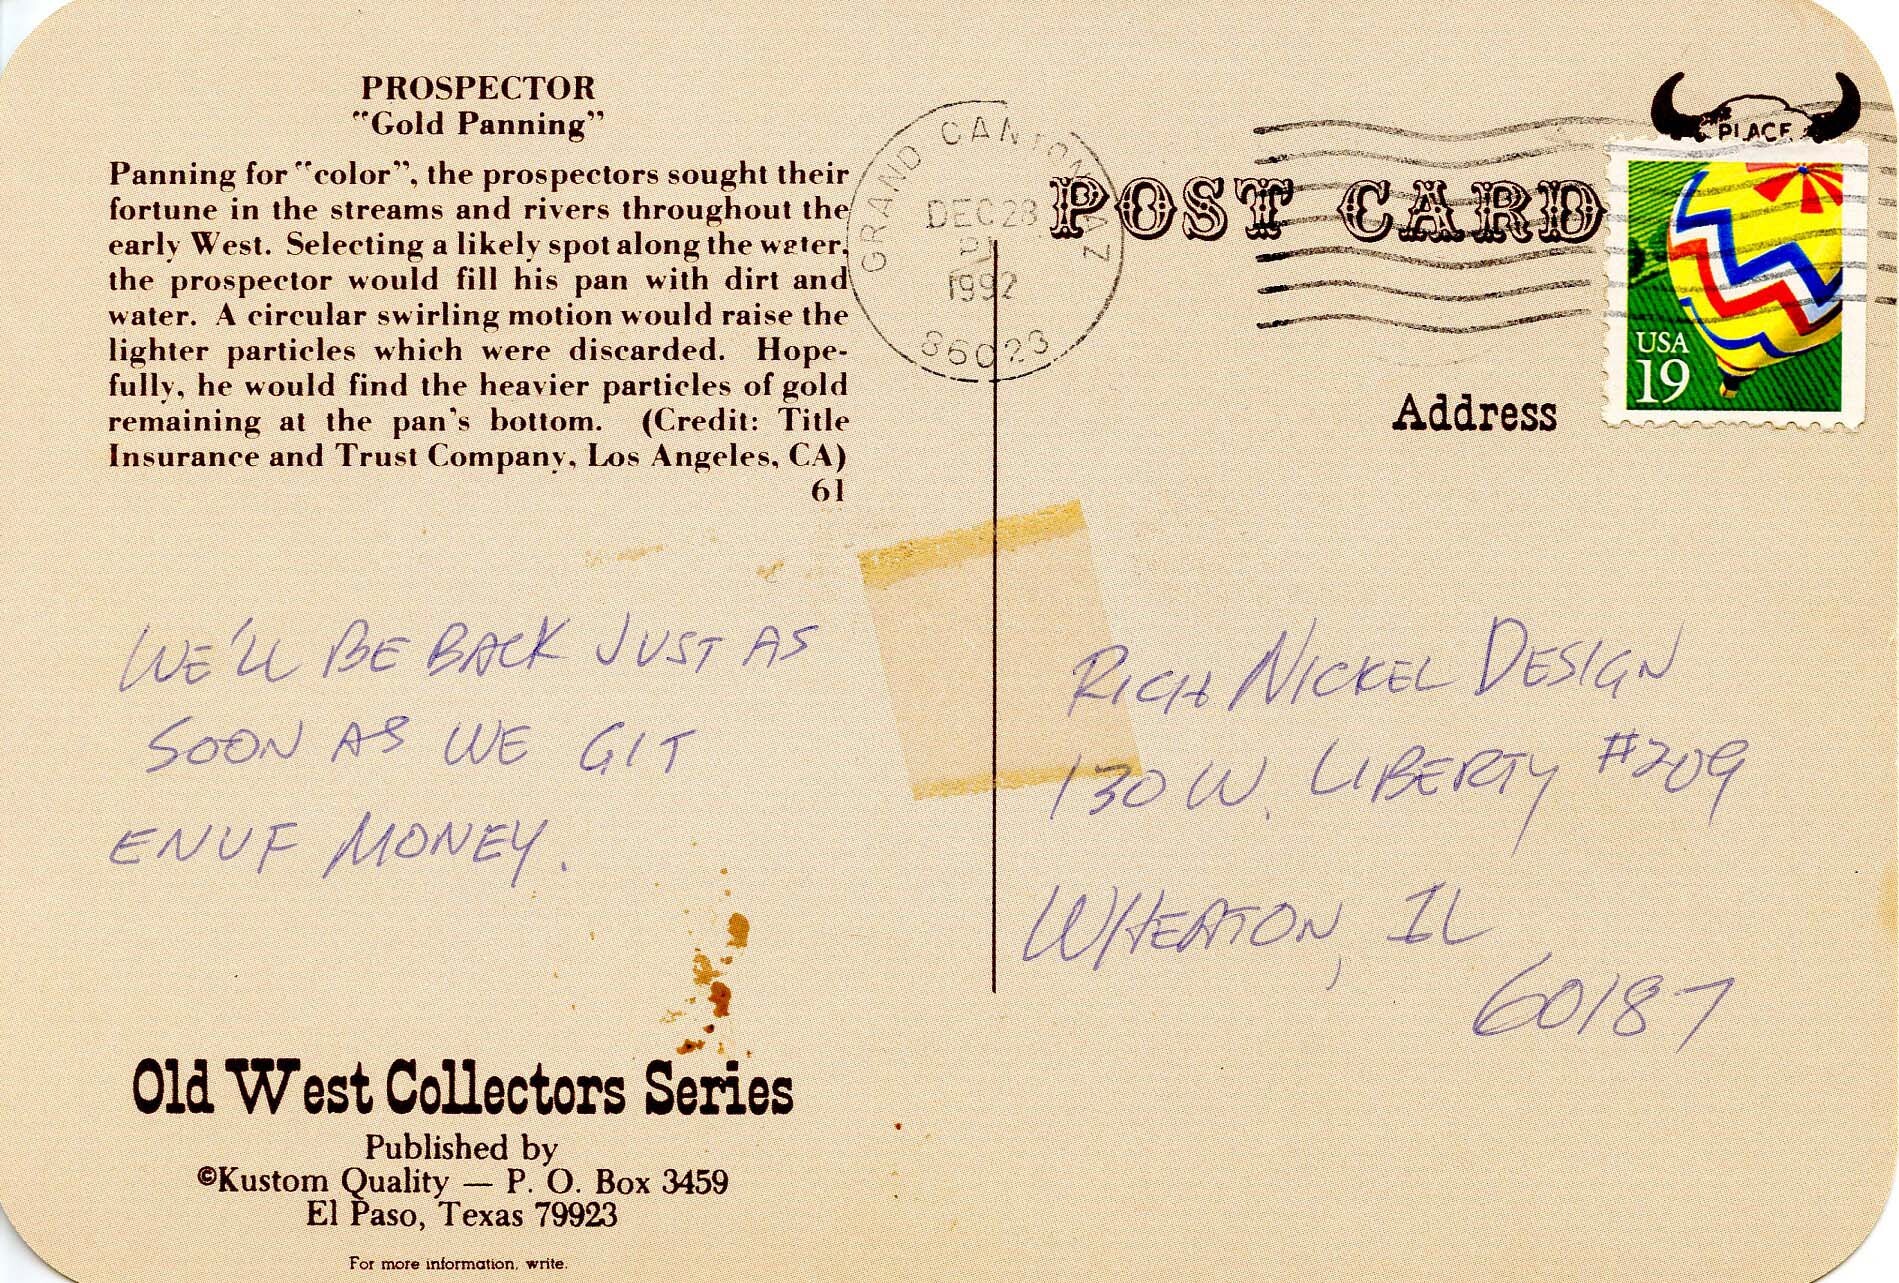 PROSPECTOR
"Gold Panning"
Panning for "color", the prospectors sought their
fortune in the streams and rivers throughout the
early West. Selecting a likely spot along the water,
the prospector would fill his pan with dirt and
water. A circular swirling motion would raise the
lighter particles which were discarded. Hope-
fully, he would find the heavier particles of gold
remaining at the pan's bottom. (Credit: Title
Insurance and Trust Company, Los Angeles, CA)
61
WE'LL BE BACK JUST AS
SOON AS WE GIT
ENUF MONEY.
Old West Collectors Series
Published by
©Kustom Quality — P. O. Box 3459
El Paso, Texas 79923
For more information, write.
GRAND CANYON AZ
DEC 28
1992
86023
POST CARD
PLACE
USA
19
Address
RICH NICKEL DESIGN
130 W. LIBERTY #209
WHEATON, IL
60187